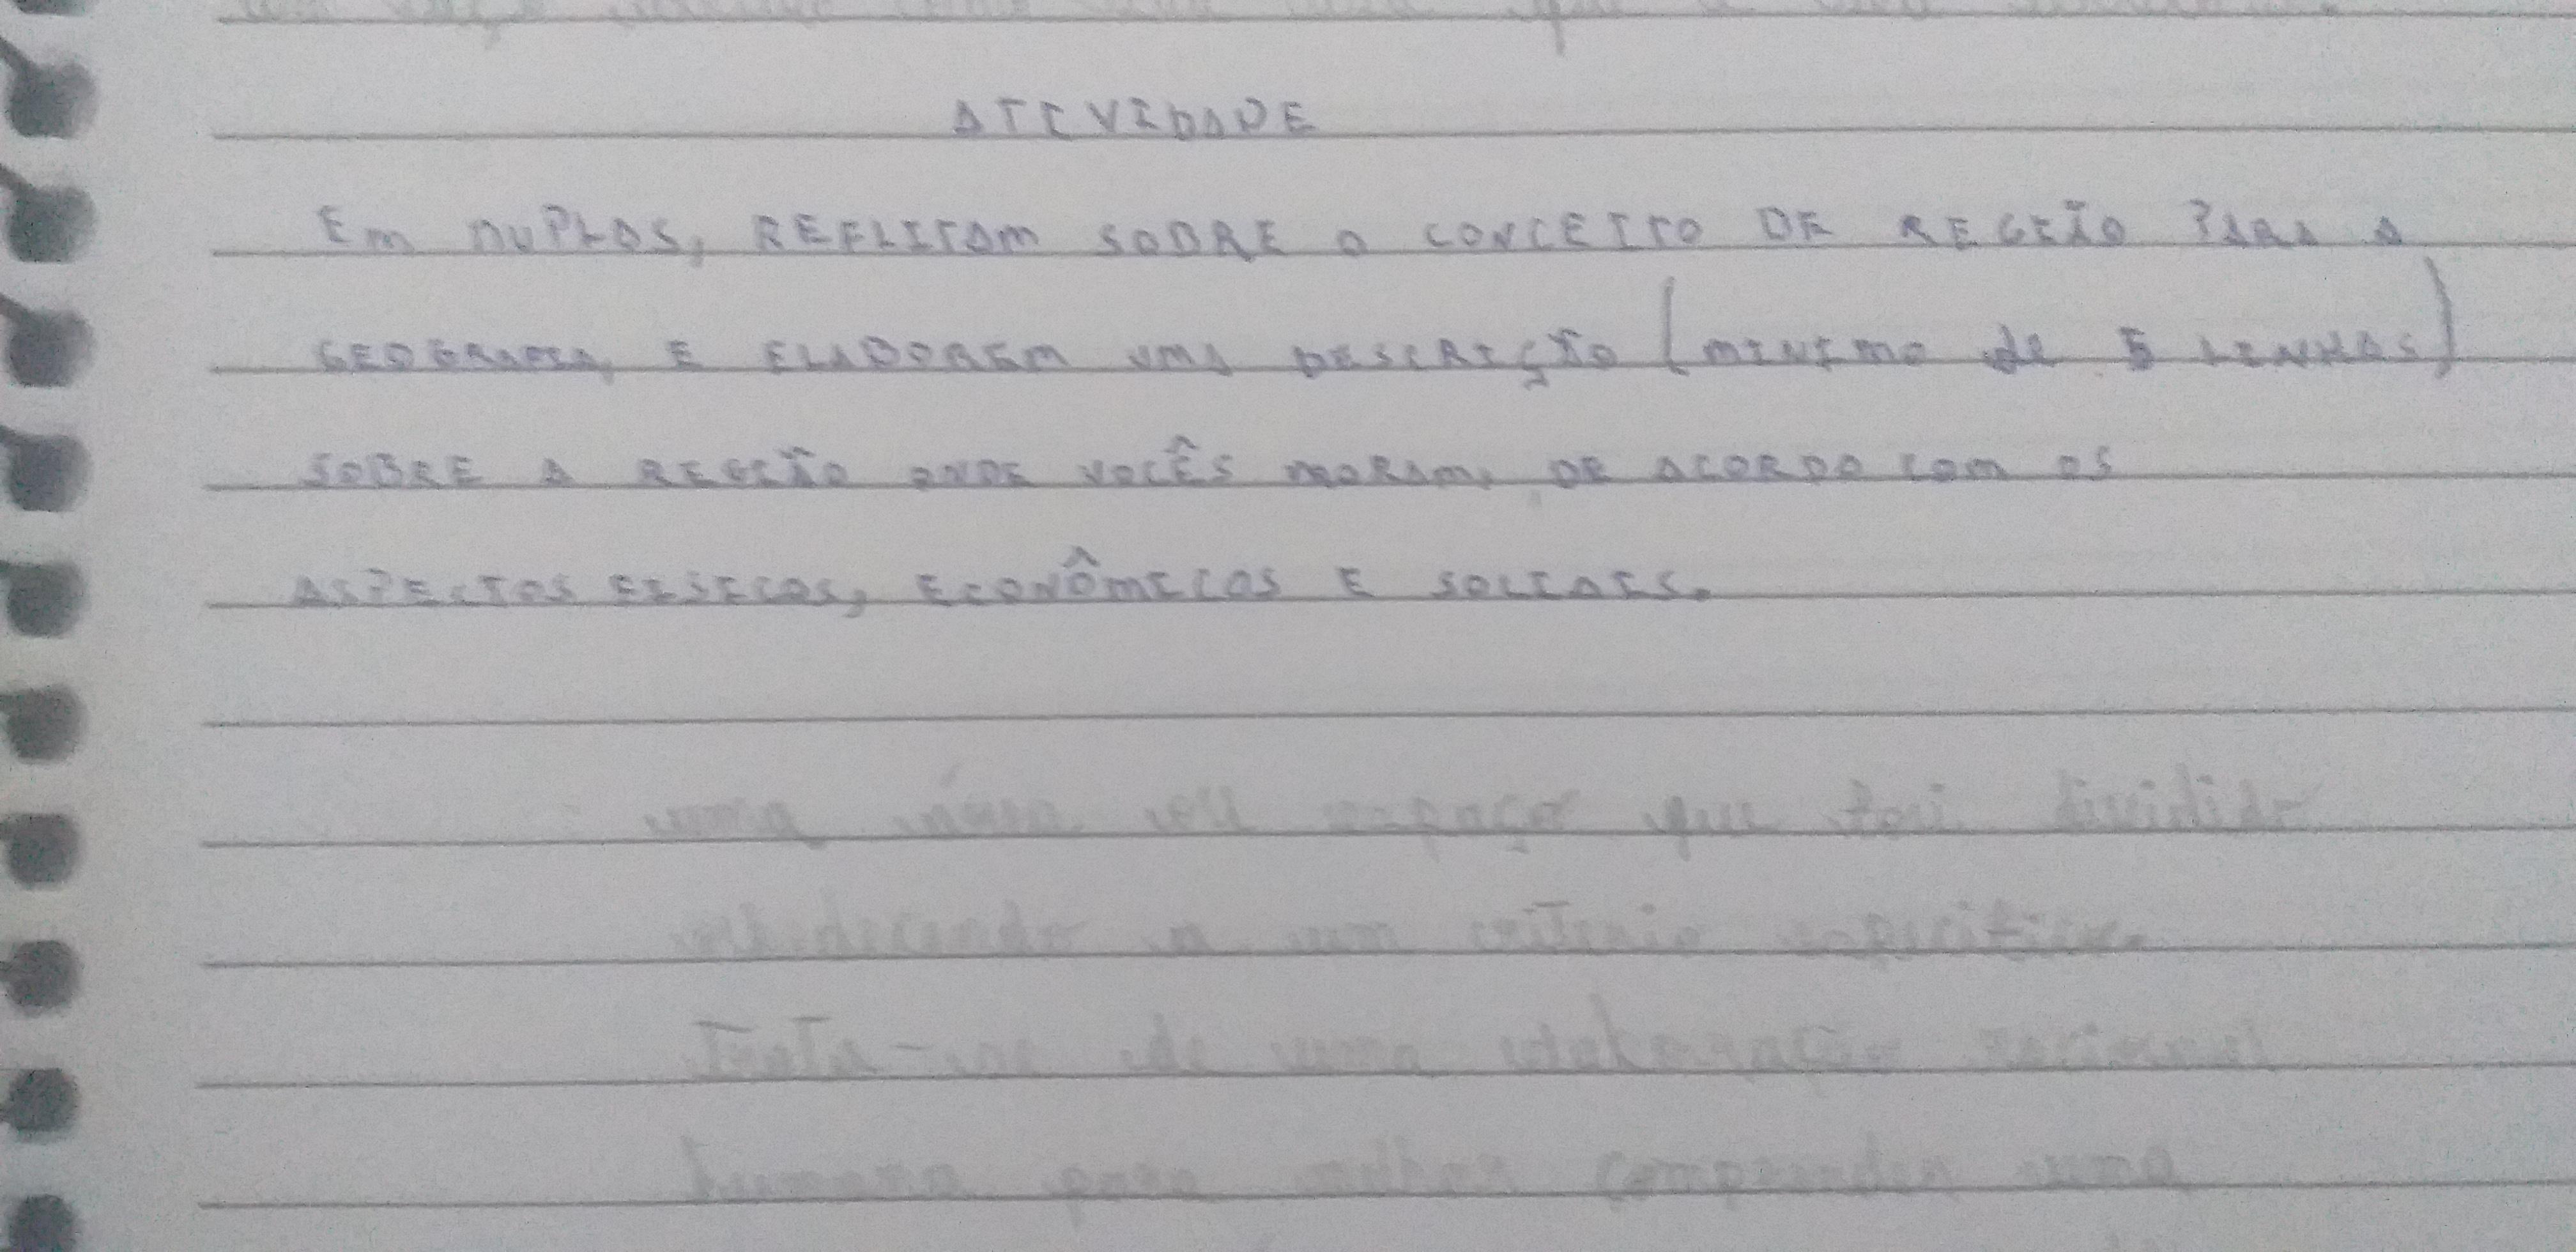 ATIVIDADE
Em DUPLAS, REFLITAM SOBRE O CONCEITO DE REGIÃO PARA A
GEOGRAFIA, E ELABOREM UMA DESCRIÇÃO (MINIMO de 5 LINHAS)
SOBRE A REGIÃO ONDE VOCÊS MORAM, DE ACORDO COM OS
ASPECTOS FISICOS, ECONÔMICOS E SOCIAIS.
uma área ou espaço que foi dividido
a um critério específico.
Trata-se de uma elaboração racional
humana para melhor compreender uma